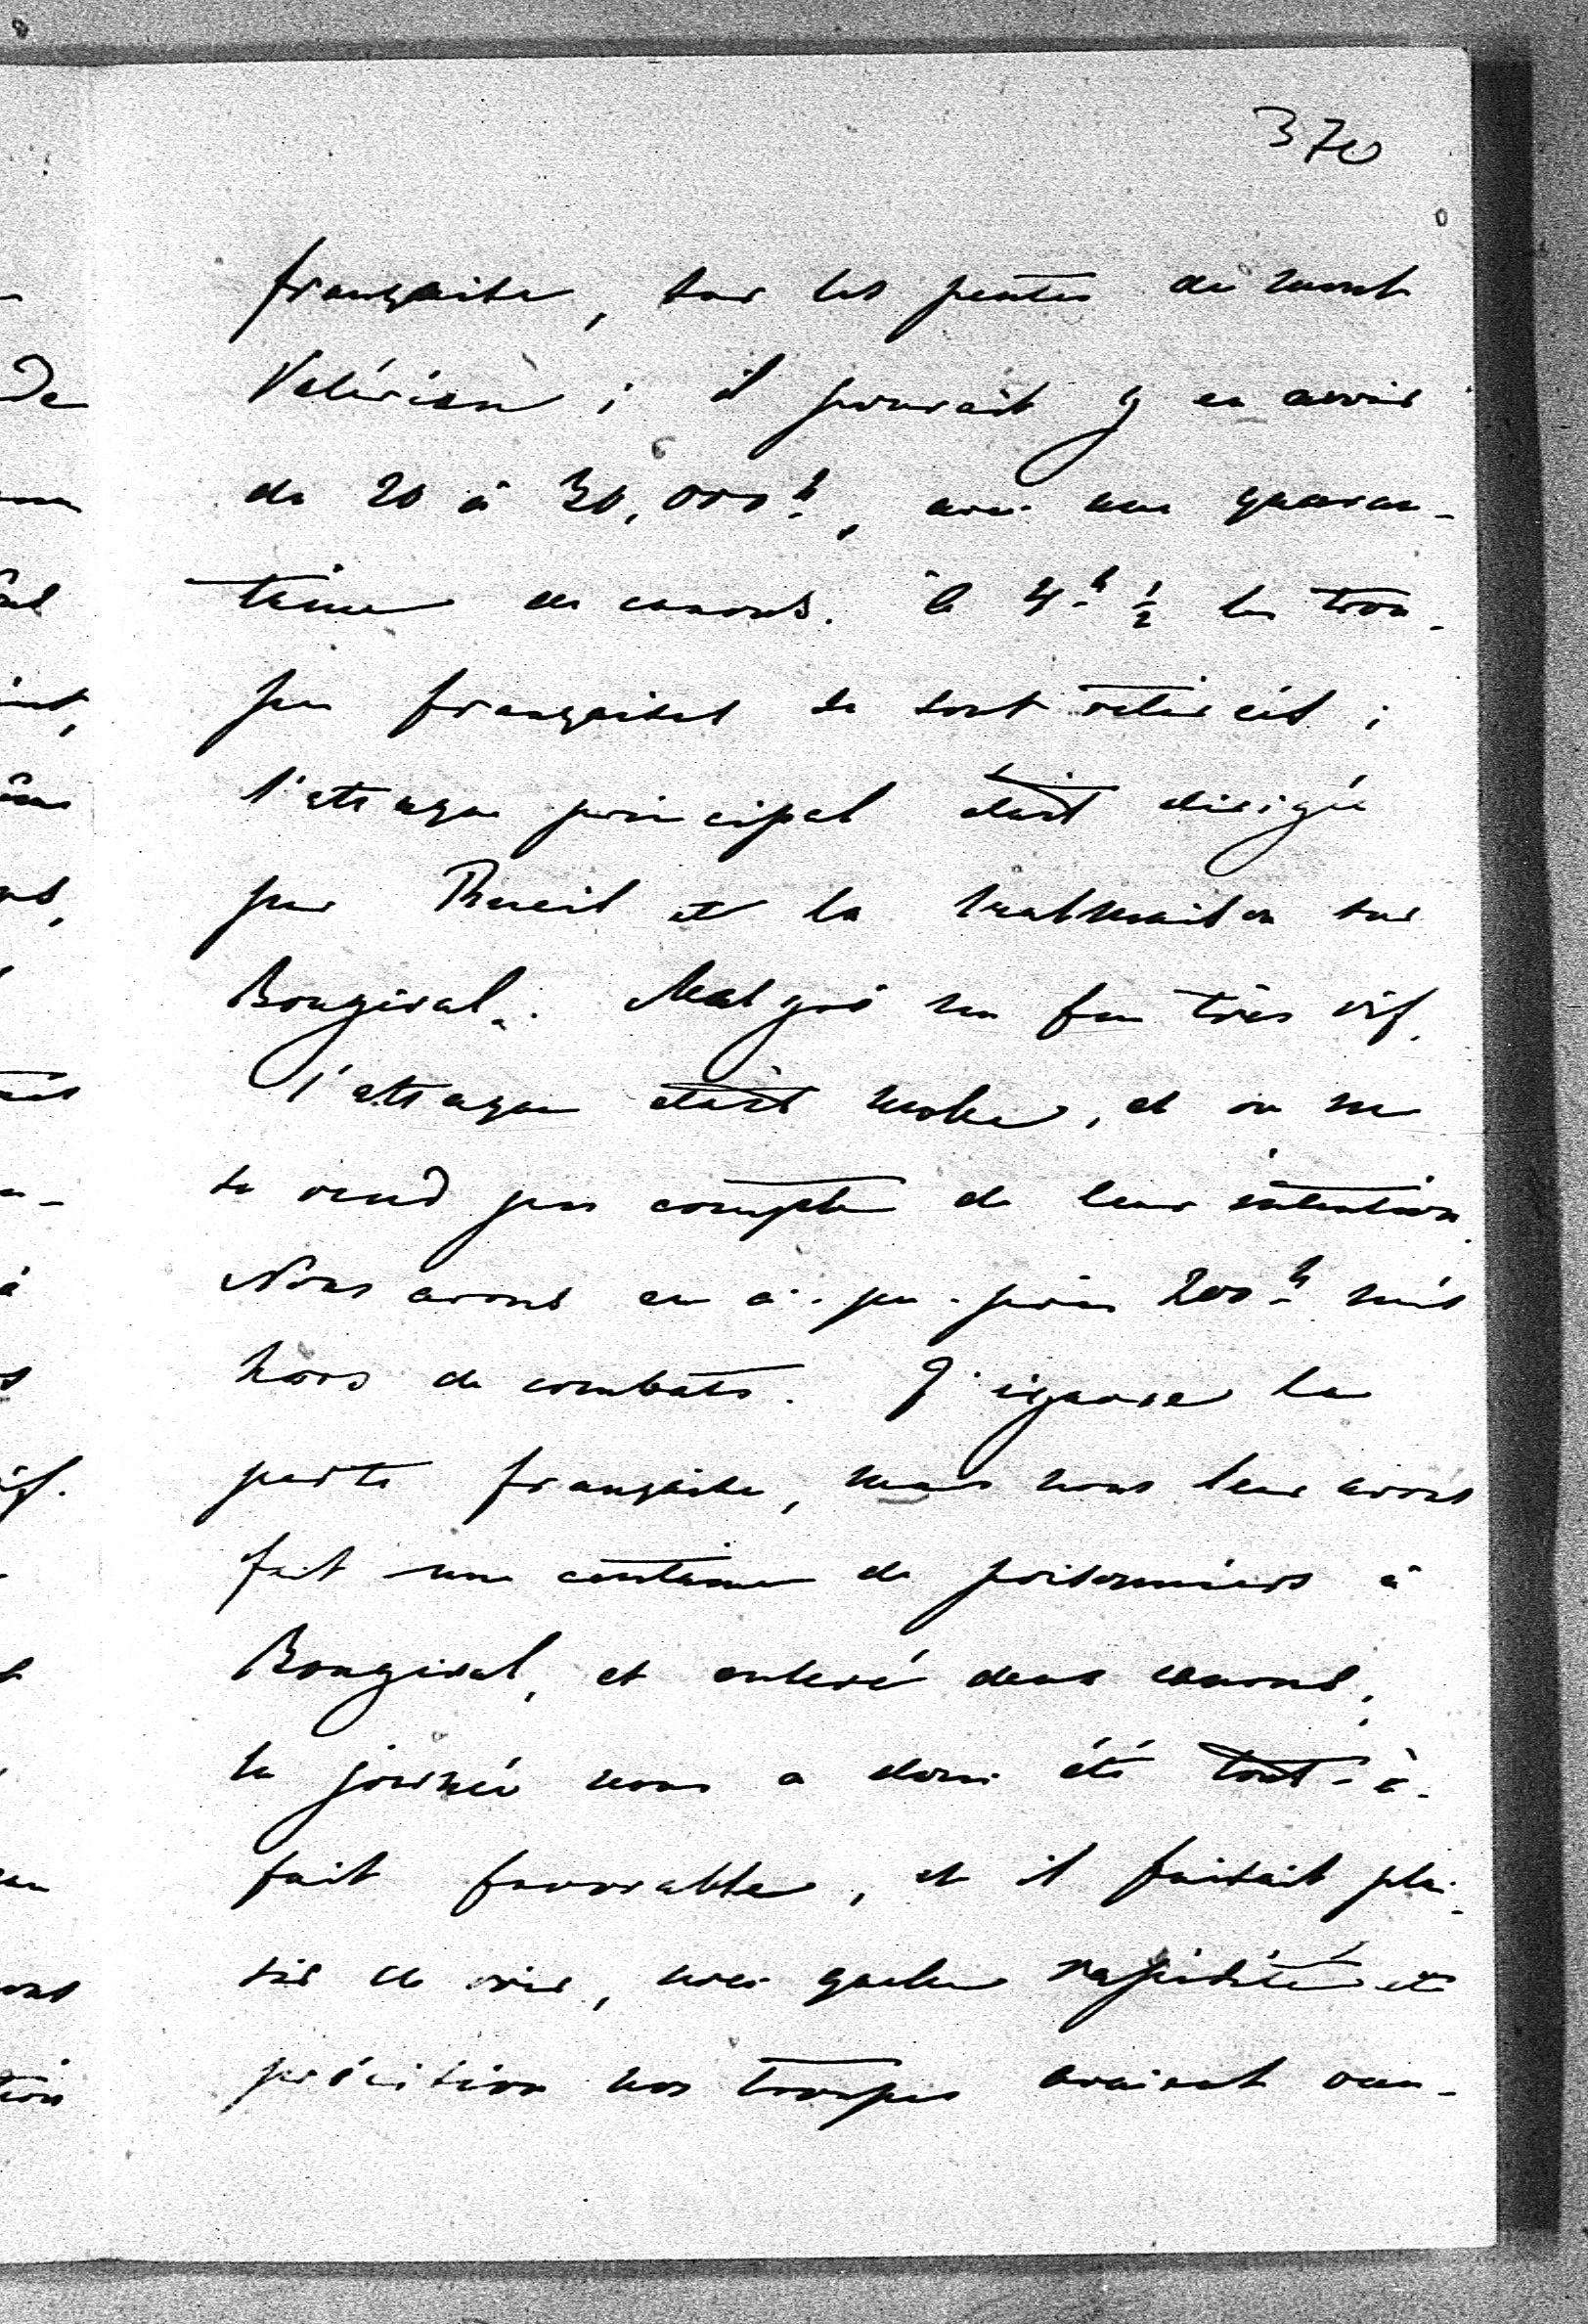 370
française, sur les pentes du mont
Valérien ; il pouvait y en avoir
de 20 à 30,000 h., avec une quaran-
taine de canons. à 4 h. ½ les trou-
pes françaises se sont retirées ;
l'attaque principal était dirigée
par Rueil et la Malmaison sur
Bougival. Malgré un feu très vif,
l'attaque était molle, et on ne
se rend pas compte de leur intention.
Nous avons eu à-peu-près 200 h. mis
hors de combats. J'ignore la
perte française, mais nous leur avons
fait une centaine de prisonniers à
Bougival, et enlevé deux canons ;
la journée nous a donc été tout-à-
fait favorable, et il faisait plai-
sir de voir, avec quelle rapidité et
précision nos troupes avaient